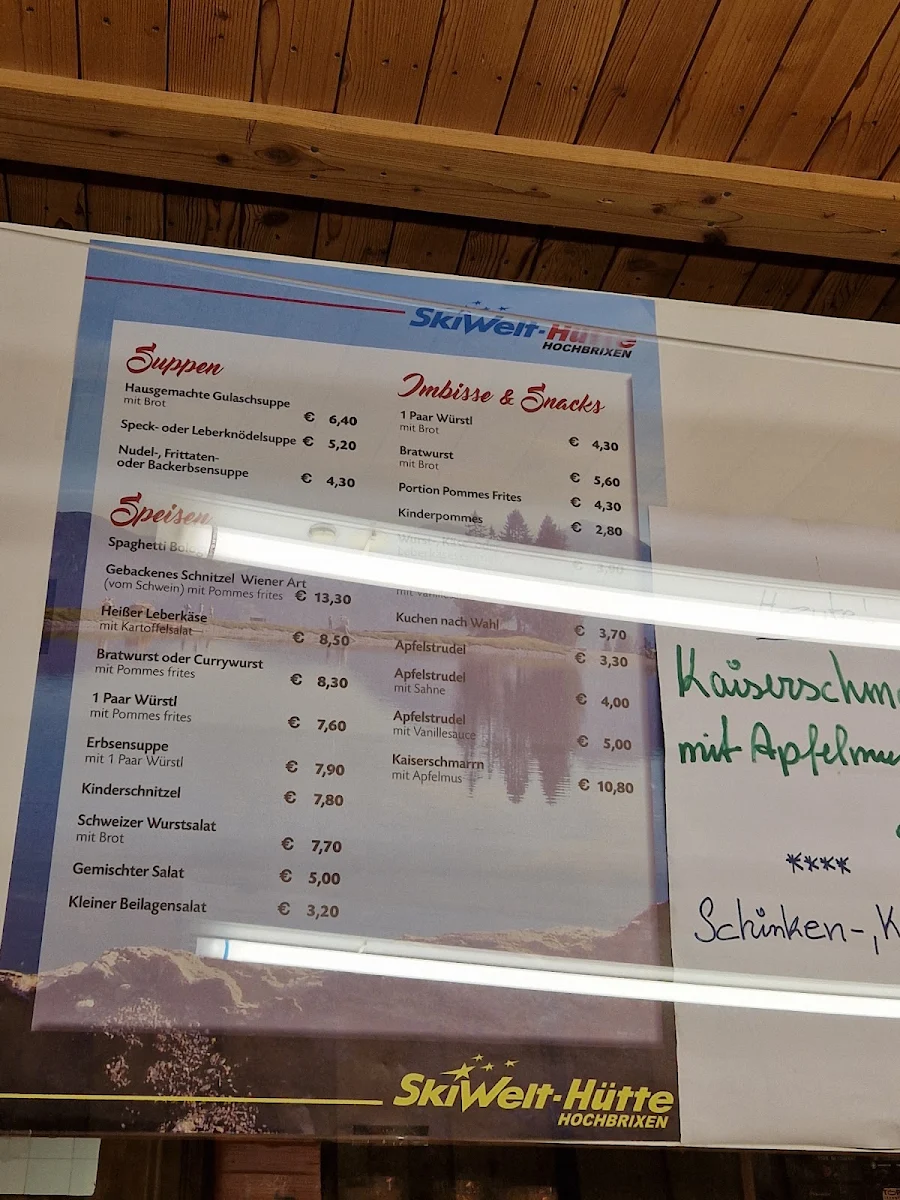 SkiWelt-Hütte
HOCHBRIXEN
Suppen
Hausgemachte Gulaschsuppe
mit Brot
€ 6,40
Speck- oder Leberknödelsuppe € 5,20
Nudel-, Frittaten-
oder Backerbsensuppe
€ 4,30
Speisen
Spaghetti
Gebackenes Schnitzel Wiener Art
(vom Schwein) mit Pommes frites € 13,30
Heißer Leberkäse
mit Kartoffelsalat
€ 8,50
Bratwurst oder Currywurst
mit Pommes frites
€ 8,30
1 Paar Würstl
mit Pommes frites
€ 7,60
Erbsensuppe
mit 1 Paar Würstl
€ 7,90
Kinderschnitzel
€ 7,80
Schweizer Wurstsalat
mit Brot
€ 7,70
Gemischter Salat
€ 5,00
Kleiner Beilagensalat
€ 3,20
Imbisse & Snacks
1 Paar Würstl
mit Brot
€ 4,30
Bratwurst
mit Brot
€ 5,60
Portion Pommes Frites
€ 4,30
Kinderpommes
€ 2,80
mit
Kuchen nach Wahl
€ 3,70
Apfelstrudel
€ 3,30
Apfelstrudel
mit Sahne
€ 4,00
Apfelstrudel
mit Vanillesauce
€ 5,00
Kaiserschmarrn
mit Apfelmus
€ 10,80
SkiWelt-Hütte
HOCHBRIXEN
Kaiserschm
mit Apfelmu
****
Schinken-, K